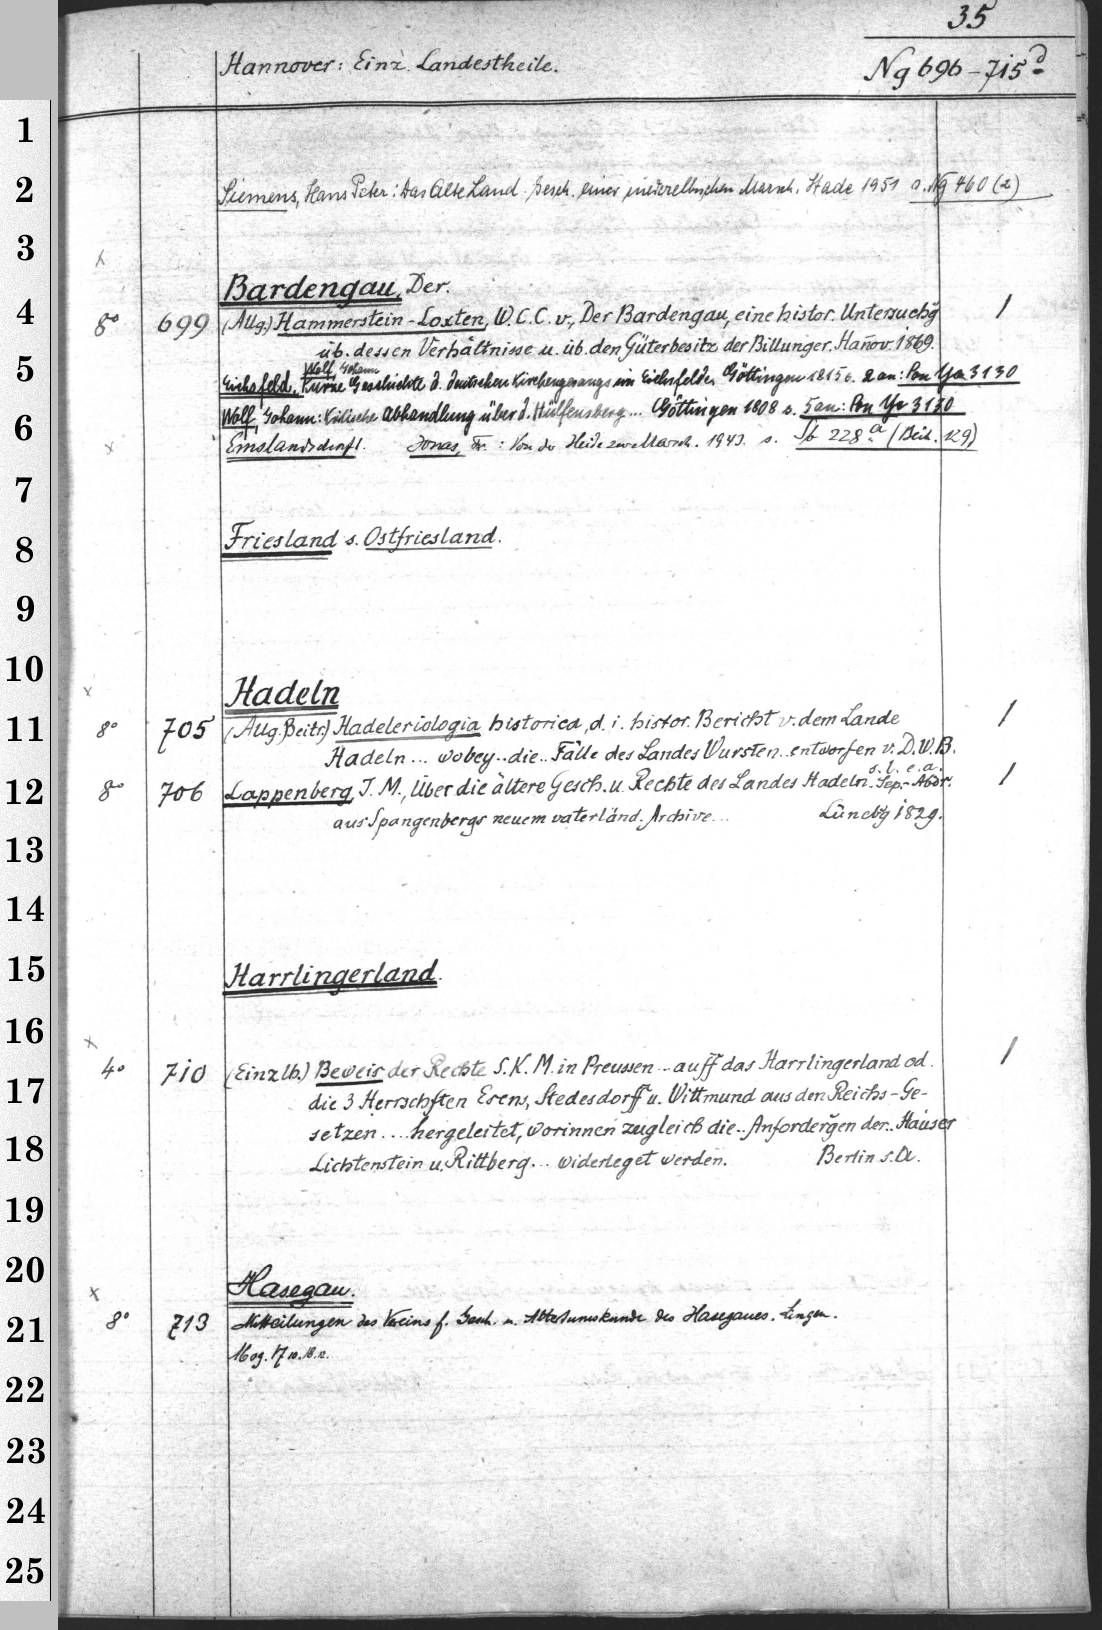 35
Hannover: Einz. Landestheile.
Ng 696-715 d
1
2
Siemens, Hans Peter: Das Alte Land. Gesch. einer niederelbischen Marsch. Stade 1951 s. Ng 460 (2)
3
x
Bardengau, Der.
4
8° 699 (Allg.) Hammerstein-Loxten, W.C.C. v., Der Bardengau, eine histor. Untersuchg 1
üb. dessen Verhältnisse u. üb. den Güterbesitz der Billunger. Hanov. 1869.
5
Wolf, Johann
Eichsfeld. Kurze Geschichte d. deutschen Kirchengesangs im Eichsfelde. Göttingen 1815 s. 2 an: Pon Ya 3130
6
Wolf, Johann: Kritische Abhandlung über d. Hülfensberg... Göttingen 1808 s. 5 an: Pon Yc 3130
x
Emslandschaft. Jonas, Fr.: Von der Heide zur Marsch. 1943. s. Sb 228 a (Beih. 129)
7
8
Friesland s. Ostfriesland.
9
10
x
Hadeln
11
8° 705 (Allg. Beitr.) Hadeleriologia historica, d. i. histor. Bericht v. dem Lande 1
Hadeln... wobey.. die.. Fälle des Landes Wursten.. entworfen v. D.W.B.
s. l. e. a.
12
8° 706 Lappenberg, J. M., Über die ältere Gesch. u. Rechte des Landes Hadeln. Sep.-Abdr. 1
aus Spangenbergs neuem vaterländ. Archive... Lünebg 1829.
13
14
15
Harrlingerland.
16
x
4° 710 (Einzlh.) Beweis der Rechte S. K. M. in Preussen... auff das Harrlingerland od. 1
17
die 3 Herrschften Esens, Stedesdorff u. Wittmund aus den Reichs-Ge-
setzen... hergeleitet, worinnen zugleich die.. Anfordergen der.. Häuser
18
Lichtenstein u. Rittberg... widerleget werden. Berlin s. a.
19
20
x
Hasegau.
21
8° 713 Mitteilungen des Vereins f. Gesch. u. Altertumskunde des Hasegaues. Lingen.
16 og. 17 10. 18. 12.
22
23
24
25